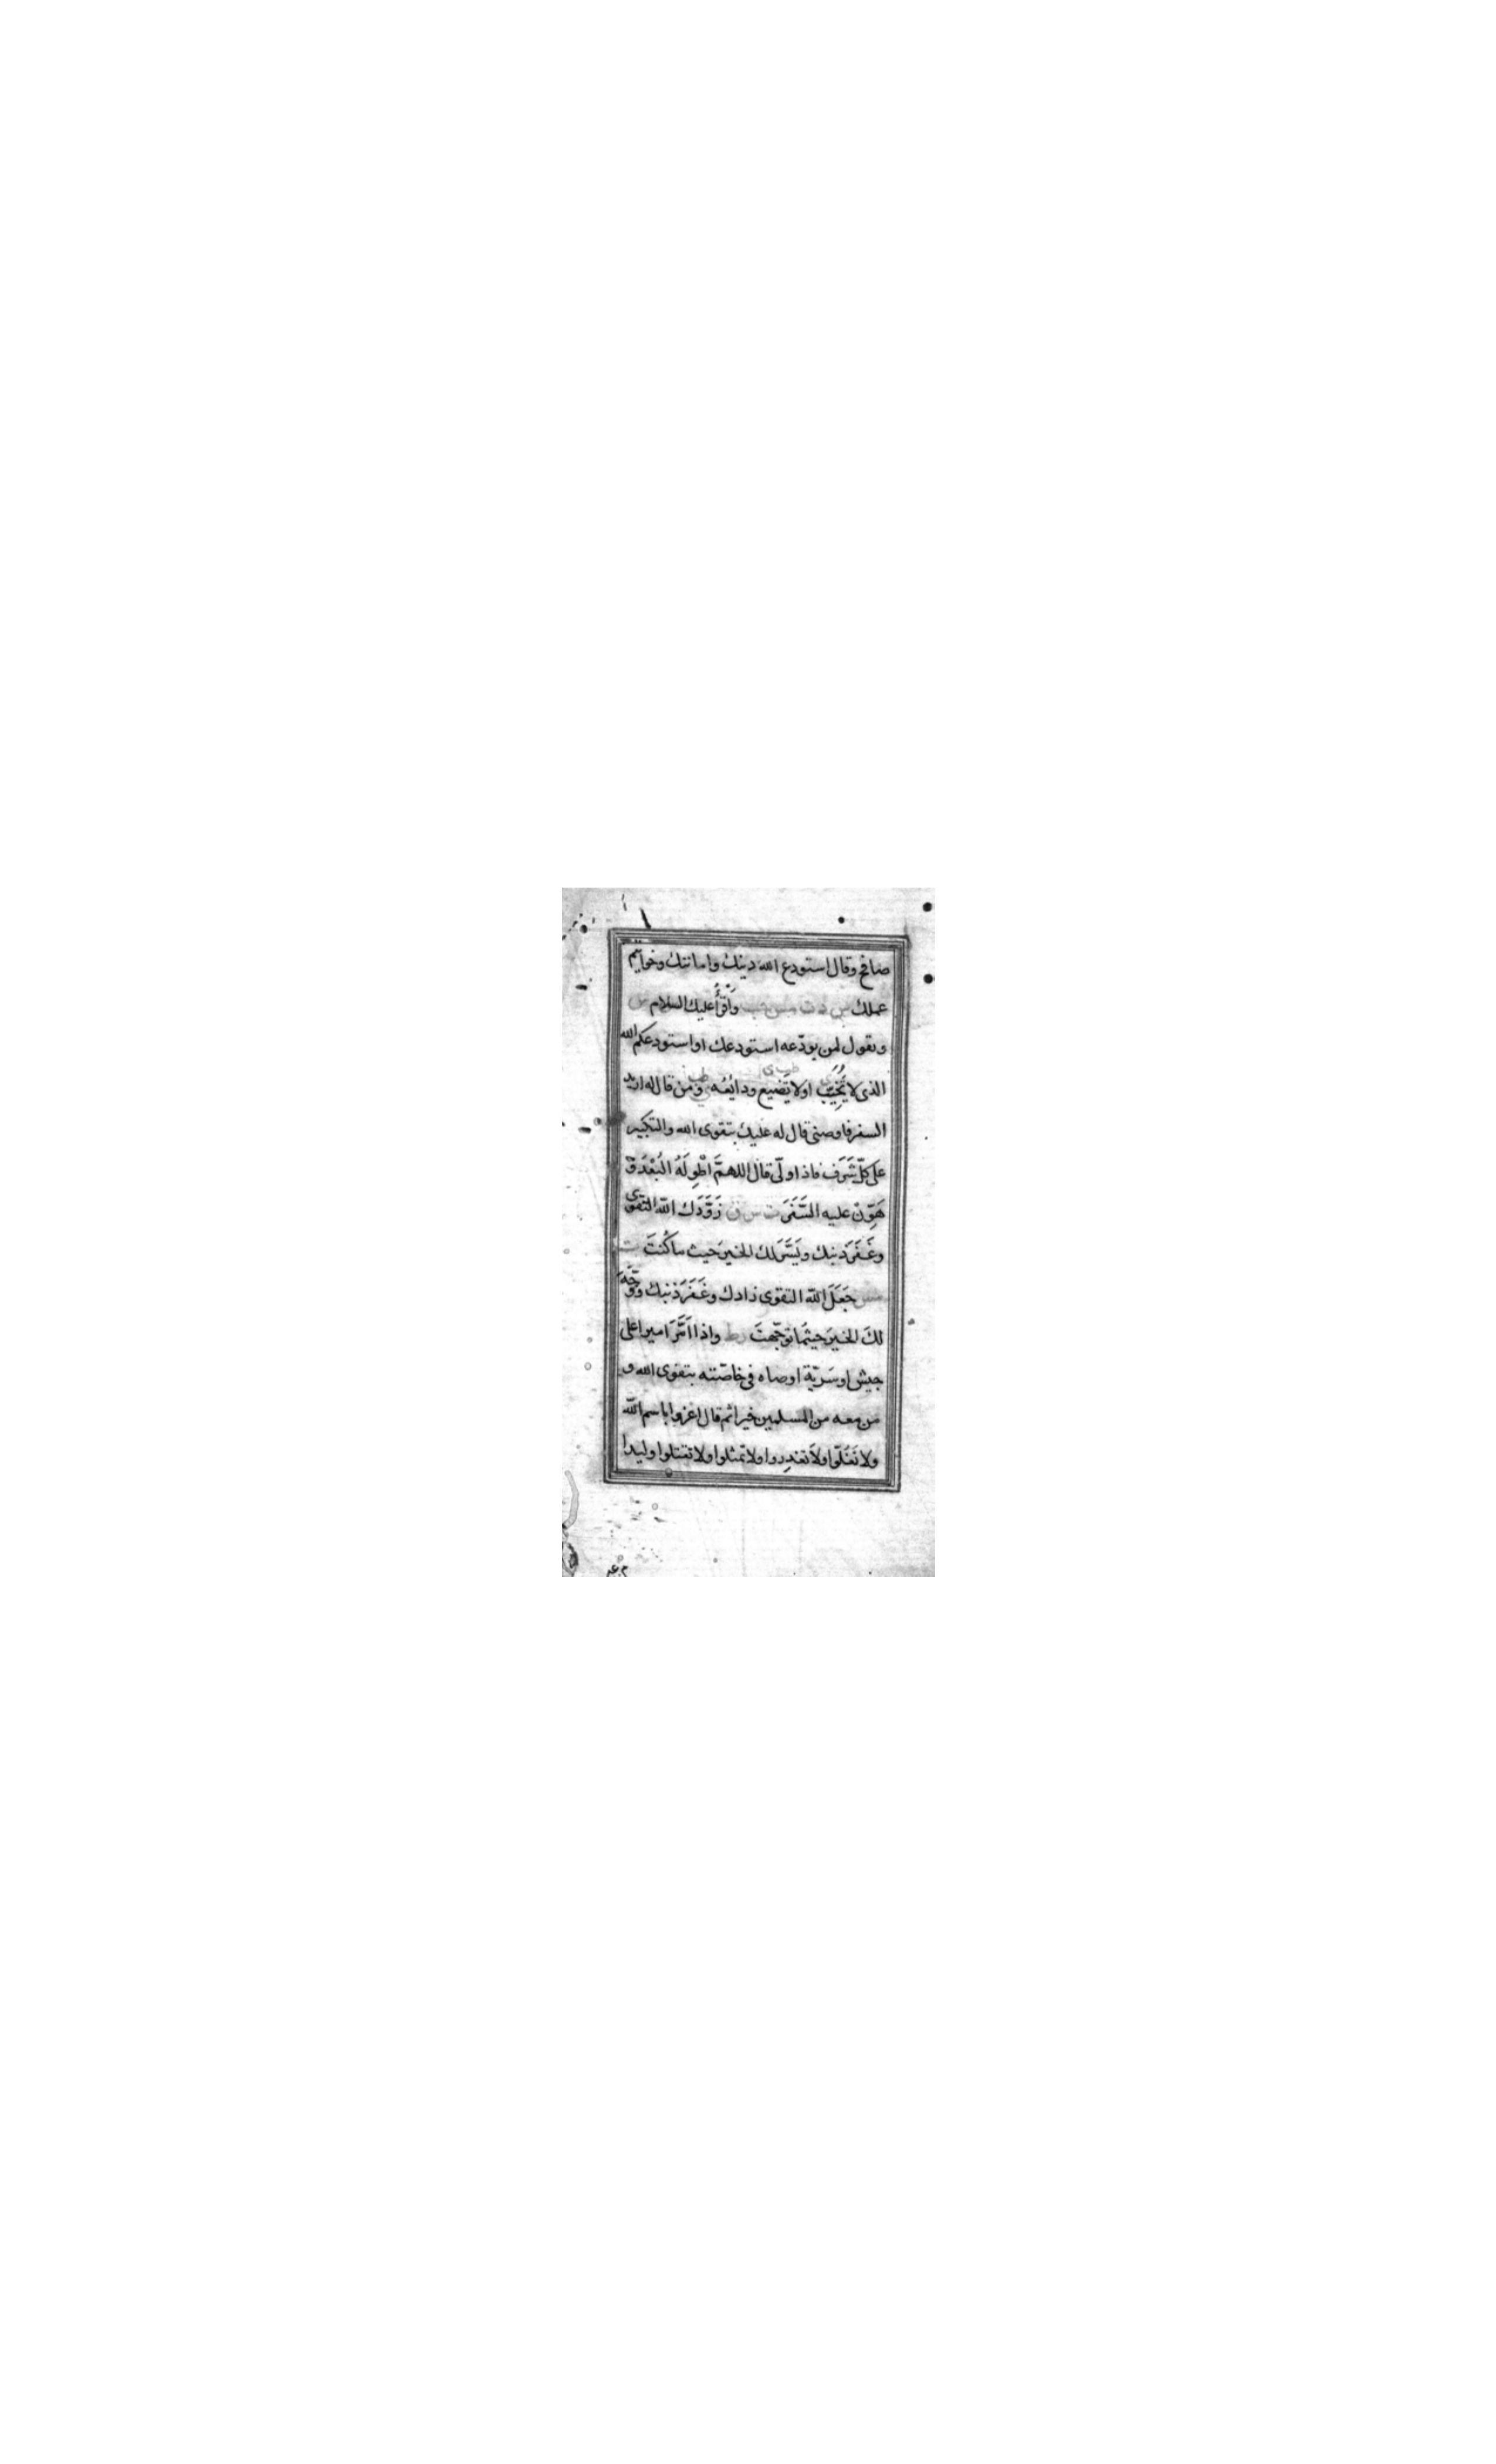 صافح وقال استودع الله دينك وامانتك وخواتيم
عملك س د ت مس حب وَأَقْرَأُ عليك السلام س
ويقول لمن يودّعه استودعك او استودعكم الله
الذى لا يُخَيِّبُ او لا يَضيع ودائعُه ومن قال له اريد
السفر فاوصنى قال له عليك بتقوى الله والتكبير
على كلّ شَرَف فاذا ولّى قال اللهمَّ اطْوِ لَهُ البُعْدَ وَ
هَوِّنْ عليه السَّفَرَ ت س ق زَوَّدَك الله التقوى
وغَفَرَ ذنبك ويَسَّرَ لك الخيرَ حيث ما كُنتَ ت
مس جَعَلَ الله التقوى زادك وغَفَرَ ذنبك ووَجَّهَ
لكَ الخيرَ حيثُما توجّهتَ ط واذا اَمَّرَ اميرا على
جيش او سَريّة اوصاه فى خاصّته بتقوى الله و
من معه من المسلمين خيرا ثم قال اغزوا باسم الله
ولا تَغُلّوا ولا تغدِروا ولا تمثلوا ولا تقتلوا وليدا